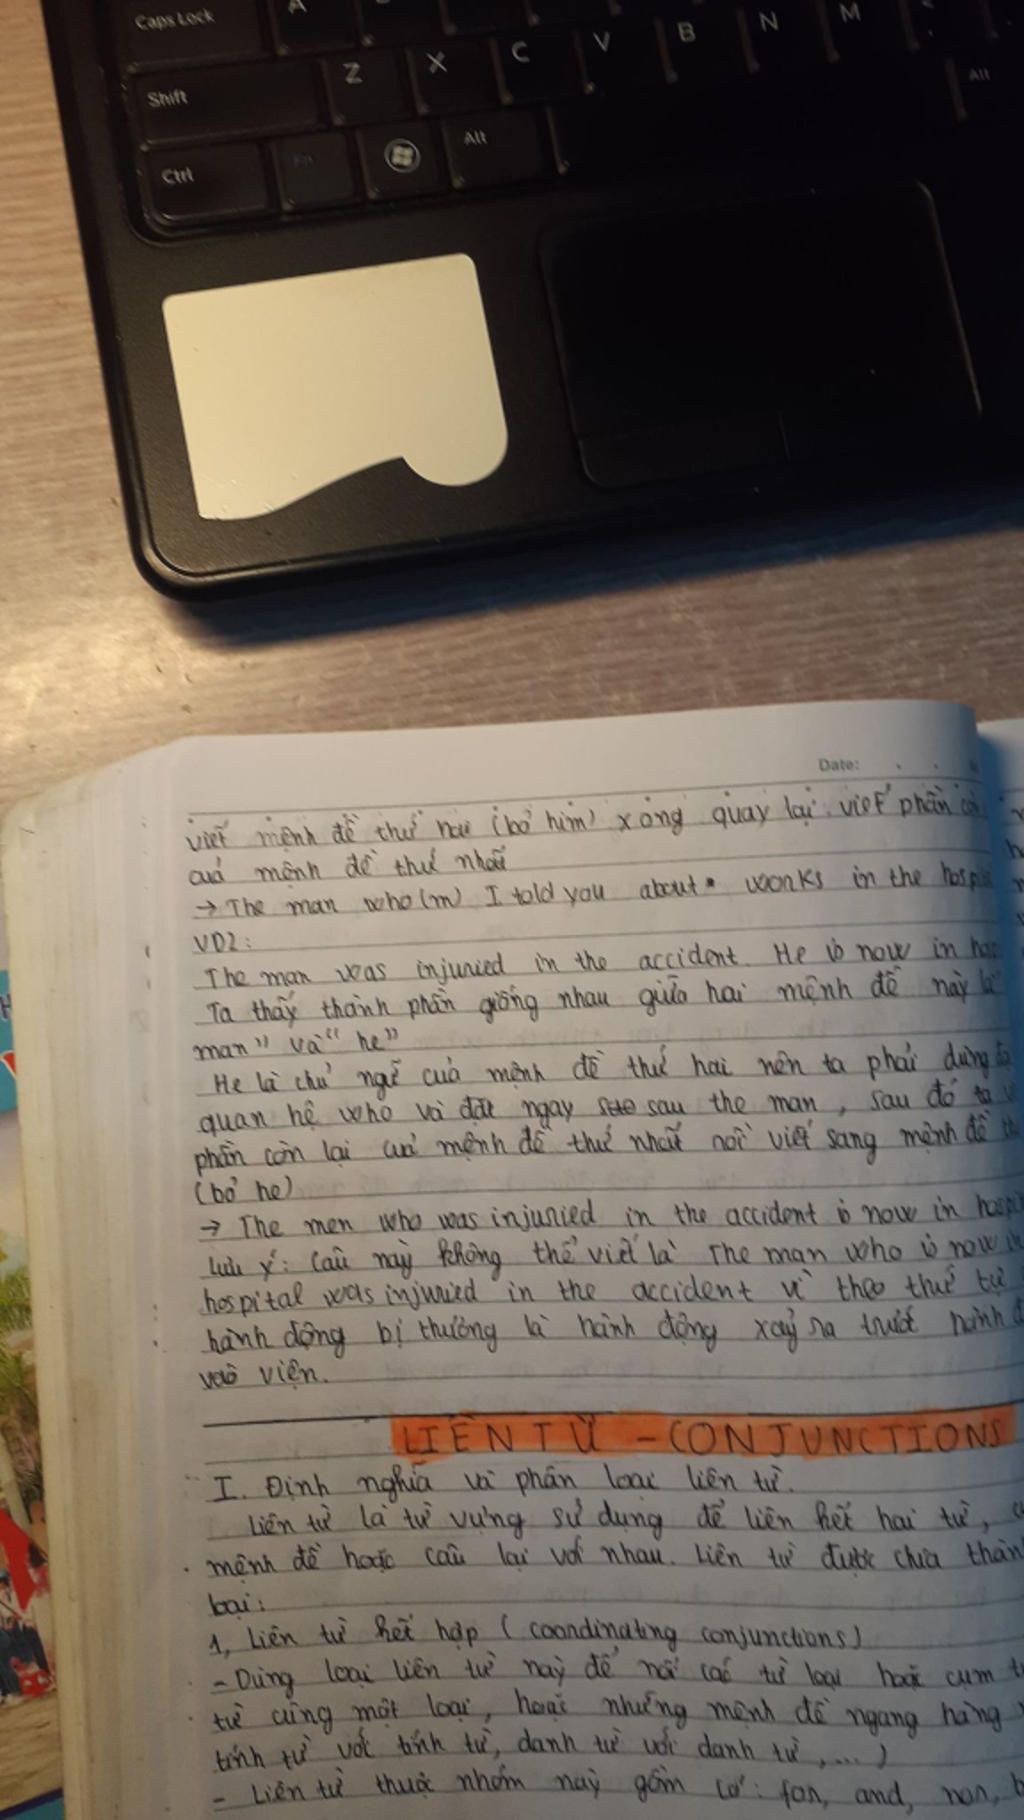 Caps Lock A
Shift Z X C V B N M Alt
Ctrl Fn Alt
Date:
viết mệnh đề thứ hai (bỏ him) xong quay lại viết phần còn
củả mệnh đề thứ nhất
→ The man who(m) I told you about works in the hospi
VD2:
The man was injuried in the accident. He is now in hos
Ta thấy thành phần giống nhau giữa hai mệnh đề này là
man" và "he"
He là chủ ngữ của mệnh đề thứ hai nên ta phải dùng
quan hệ who và đặt ngay sau the man, sau đó ta v
phần còn lại của mệnh đề thứ nhất rồi viết sang mệnh đề
(bỏ he)
→ The men who was injuried in the accident is now in hospi
Lưu ý: Câu này không thể viết là The man who is now in
hospital was injuried in the accident vì theo thứ tự
hành động bị thương là hành động xảy ra trước hành đ
vào viện.
LIÊN TỪ - CONJUNCTIONS
I. Định nghĩa và phân loại liên từ.
Liên từ là từ vựng sử dụng để liên kết hai từ, c
mệnh đề hoặc câu lại với nhau. Liên từ được chia thàn
loại:
1, Liên từ kết hợp (coordinating conjunctions)
- Dùng loại liên từ này để nối các từ loại hoặc cụm t
từ cùng một loại, hoặc những mệnh đề ngang hàng
tính từ với tính từ, danh từ với danh từ, ...)
- Liên từ thuộc nhóm này gồm có: for, and, nor, b